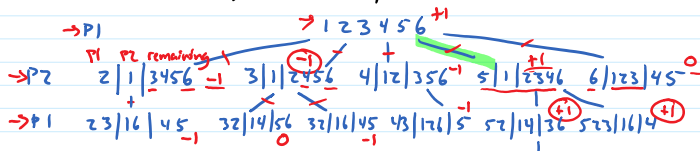 →P1 → 1 2 3 4 5 6 +1
P1 P2 remaining
→P2 2|1|3456 -1 3|1|2456 -1 4|12|356 -1 5|1|2346 +1 6|123|45 0
→P1 23|16|45 -1 32|14|56 0 32|16|45 -1 43|126|5 -1 52|14|36 +1 523|16|4 +1